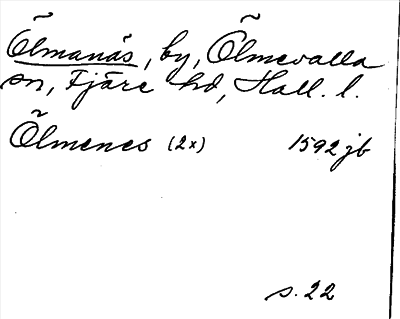 Ölmanäs, by, Ölmevalla
sn, Fjäre hd, Hall. l.
Ölmenes (2x) 1592 jb
s. 22